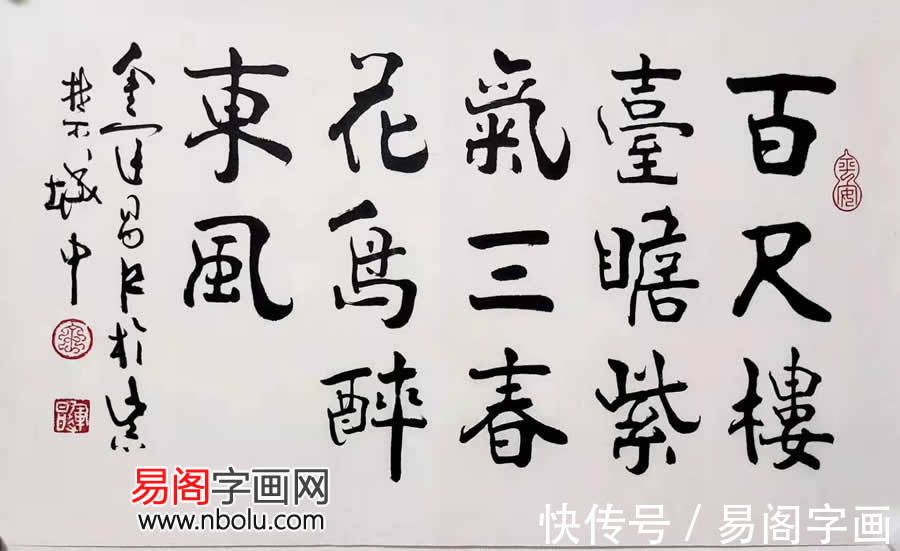 百尺樓
臺瞻紫
氣三春
花鳥醉
東風
金軍昌书於紫
禁城中
易阁字画网
www.nbolu.com
快传号 / 易阁字画